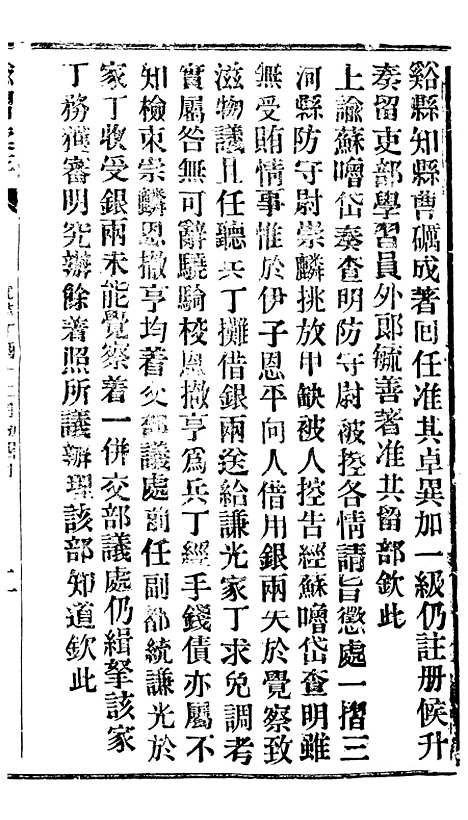 谿縣知縣曹礪成著回任准其卓異加一級仍註册候升
奏留吏部學習員外郎毓善著准其留部欽此
上諭蘇嚕岱奏查明防守尉被控各情請旨懲處一摺三
河縣防守尉崇麟挑放甲缺被人控告經蘇嚕岱查明雖
無受賄情事惟於伊子恩平向人借用銀兩失於覺察致
滋物議且任聽兵丁攤借銀兩送給謙光家丁求免調考
實屬咎無可辭驍騎校恩撤亨爲兵丁經手錢債亦屬不
知檢束崇麟恩撤亨均着交部議處前任副都統謙光於
家丁收受銀兩未能覺察着一併交部議處仍緝拏該家
丁務獲審明究辦餘着照所議辦理該部知道欽此